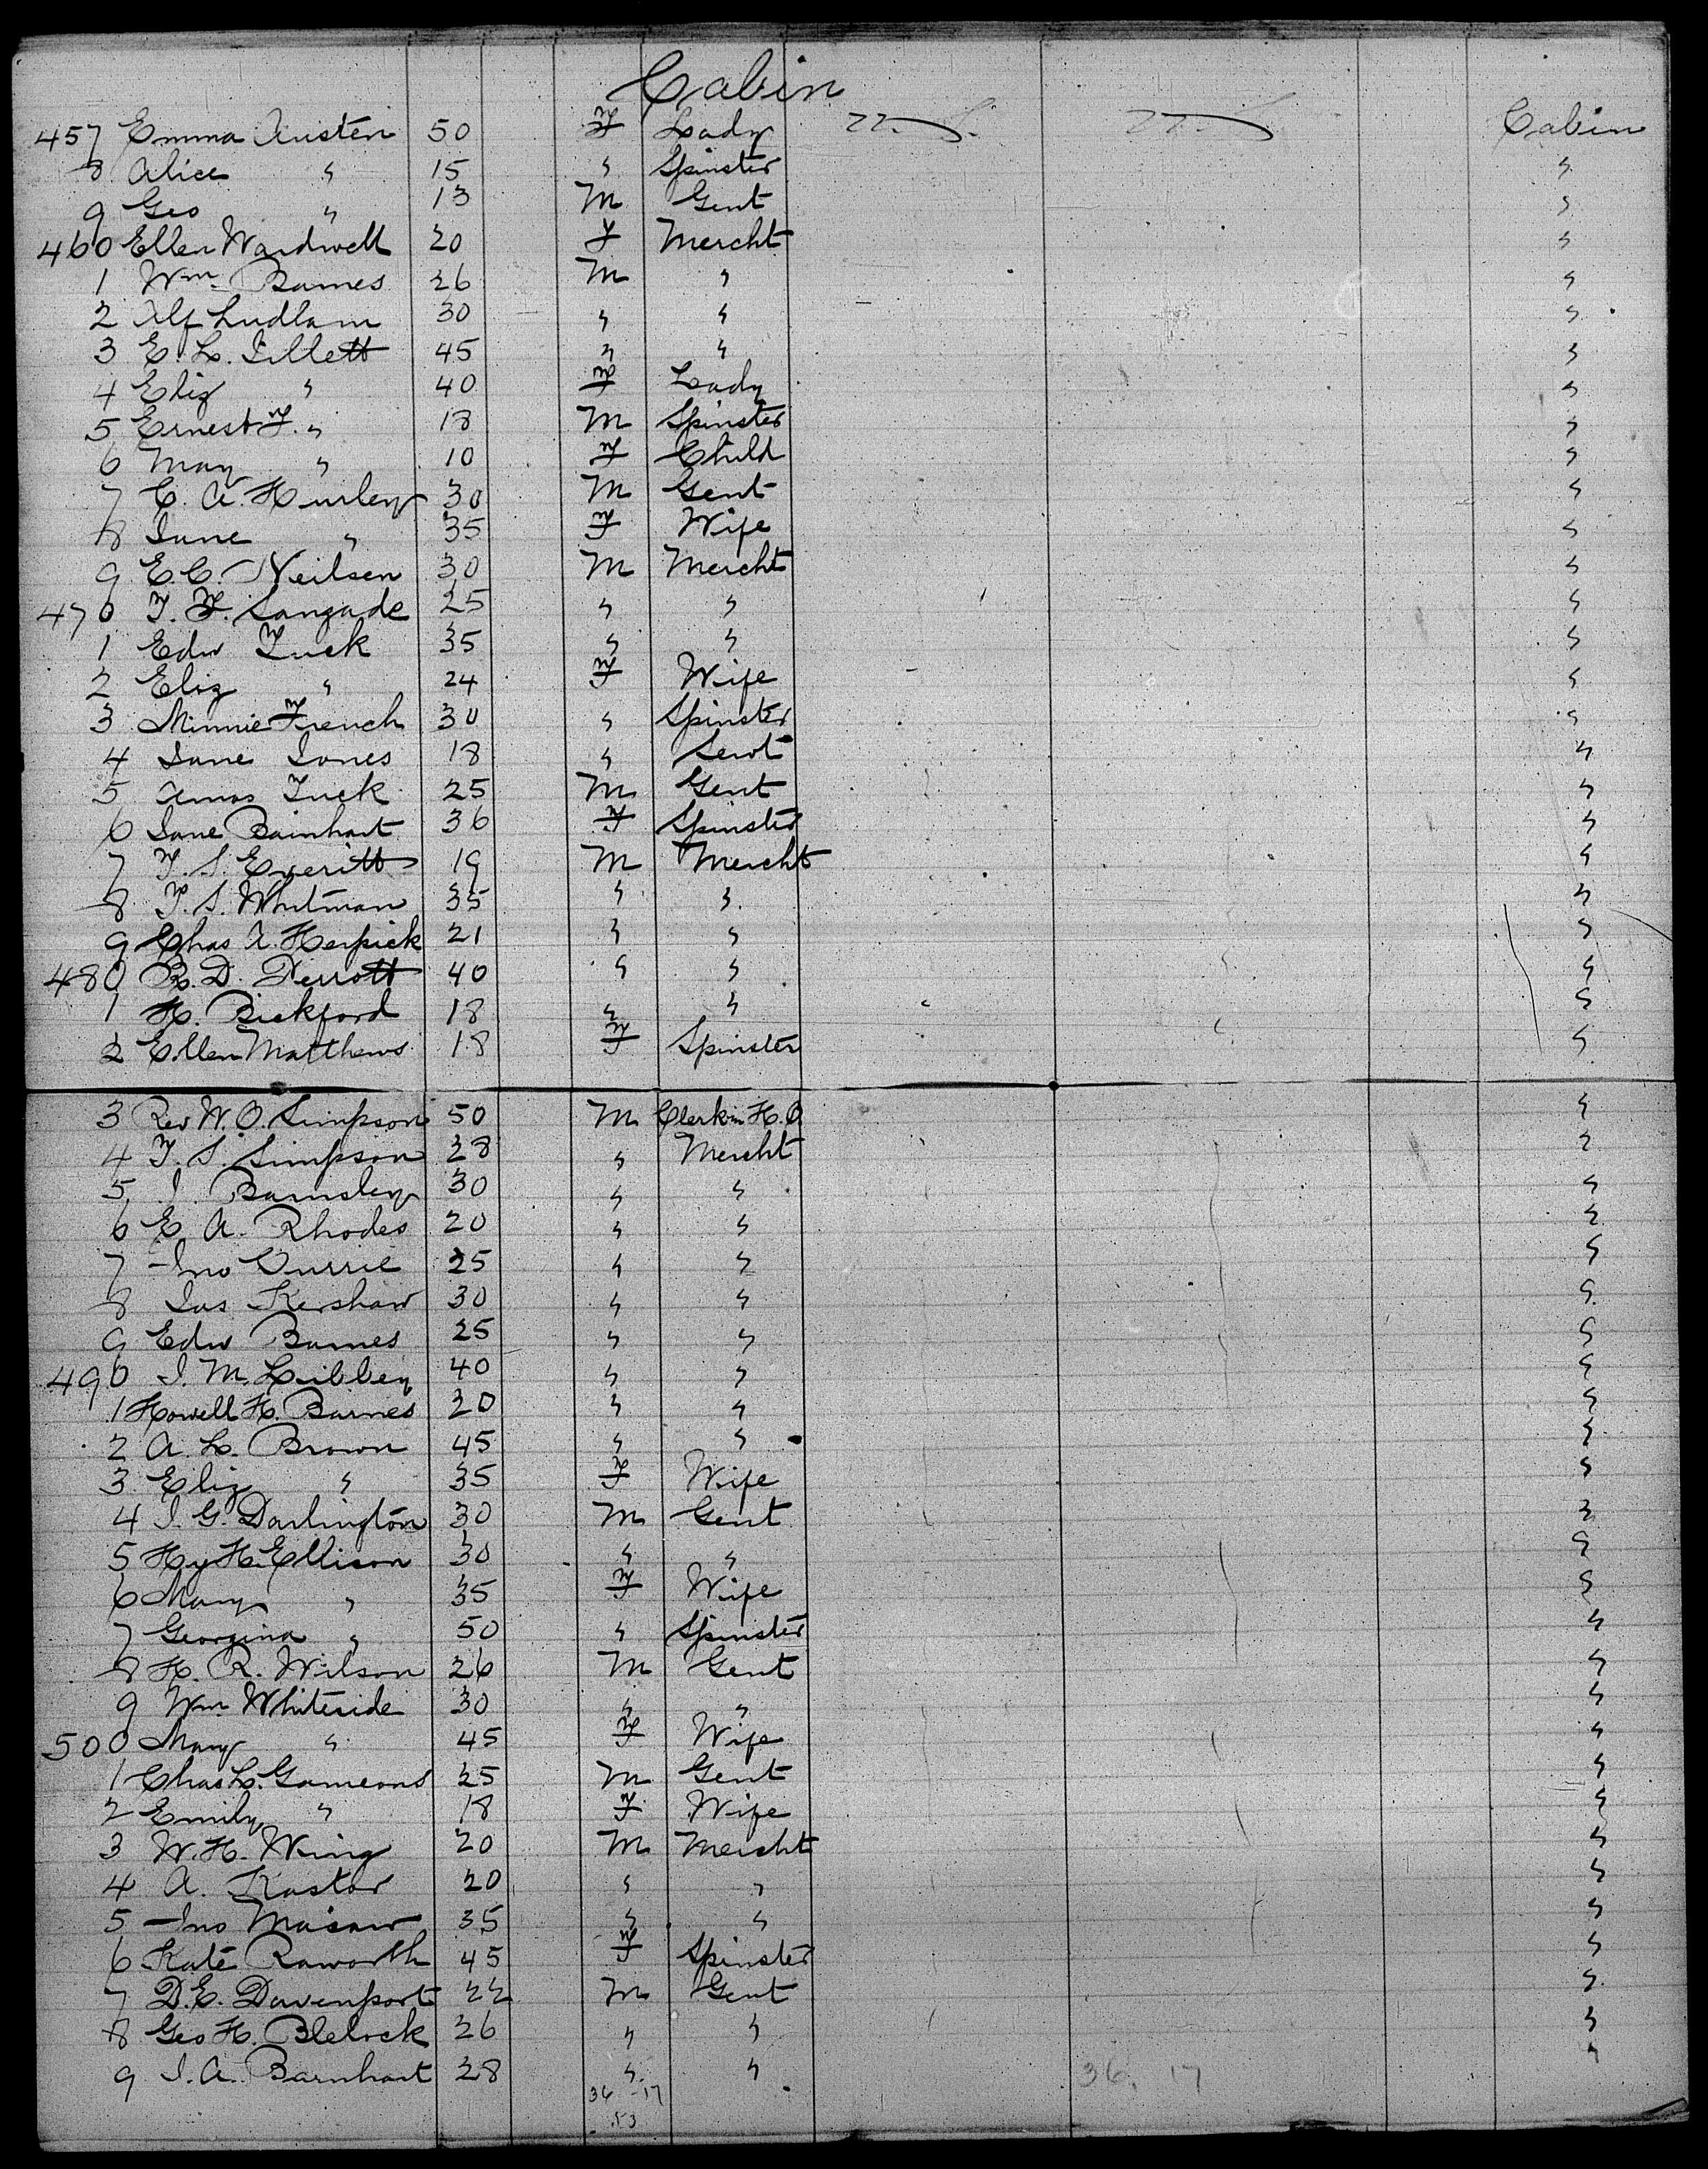 Cabin
457 Emma Austen 50 F Lady U. S. U. S. Cabin
8 Alice " 15 " Spinster "
9 Geo " 13 M Gent "
460 Ellen Wardwell 20 F Mercht "
1 Wm. Barnes 26 M " "
2 Alf Ludlam 30 " " "
3 E. L. Tillett 45 " " "
4 Eliz " 40 F Lady "
5 Ernest F. " 18 M Spinster "
6 May " 10 F Child "
7 C. A. Hurley 30 M Gent "
8 Jane " 35 F Wife "
9 E. C. Neilsen 30 M Mercht "
470 T. F. Langade 25 " " "
1 Edw Tuck 35 " " "
2 Eliz " 24 F Wife "
3 Minnie French 30 " Spinster "
4 Jane Jones 18 " Servt "
5 Amos Tuck 25 M Gent "
6 Jane Barnhart 36 F Spinster "
7 T. S. Everitt 19 M Mercht "
8 T. S. Whitman 35 " " "
9 Chas A. Herpick 21 " " "
480 R. D. Perrott 40 " " "
1 H. Bickford 18 " " "
2 Ellen Matthews 18 F Spinster "
3 Rev W. O. Simpson 50 M Clerk in H. O. "
4 T. S. Simpson 28 " Mercht "
5 J. Barnsley 30 " " "
6 E. A. Rhodes 20 " " "
7 Jno Currie 25 " " "
8 Jas Kershaw 30 " " "
9 Edw Barnes 25 " " "
490 J. M. Libbey 40 " " "
1 Howell H. Barnes 20 " " "
2 A. L. Brown 45 " " "
3 Eliz " 35 F Wife "
4 J. G. Darlington 30 M Gent "
5 Hy H. Ellison 30 " " "
6 Mary " 35 F Wife "
7 Georgina " 50 " Spinster "
8 H. R. Wilson 26 M Gent "
9 Wm Whiteside 30 " " "
500 Mary " 45 F Wife "
1 Chas L. Gameons 25 M Gent "
2 Emily " 18 F Wife "
3 W. H. Wring 20 M Mercht "
4 A. Kastor 20 " " "
5 Jno Masaw 35 " " "
6 Kate Raworth 45 F Spinster "
7 D. E. Davenport 22 M Gent "
8 Geo H. Blelock 26 " " "
9 J. A. Barnhart 28 " " "
36 17 36. 17
53